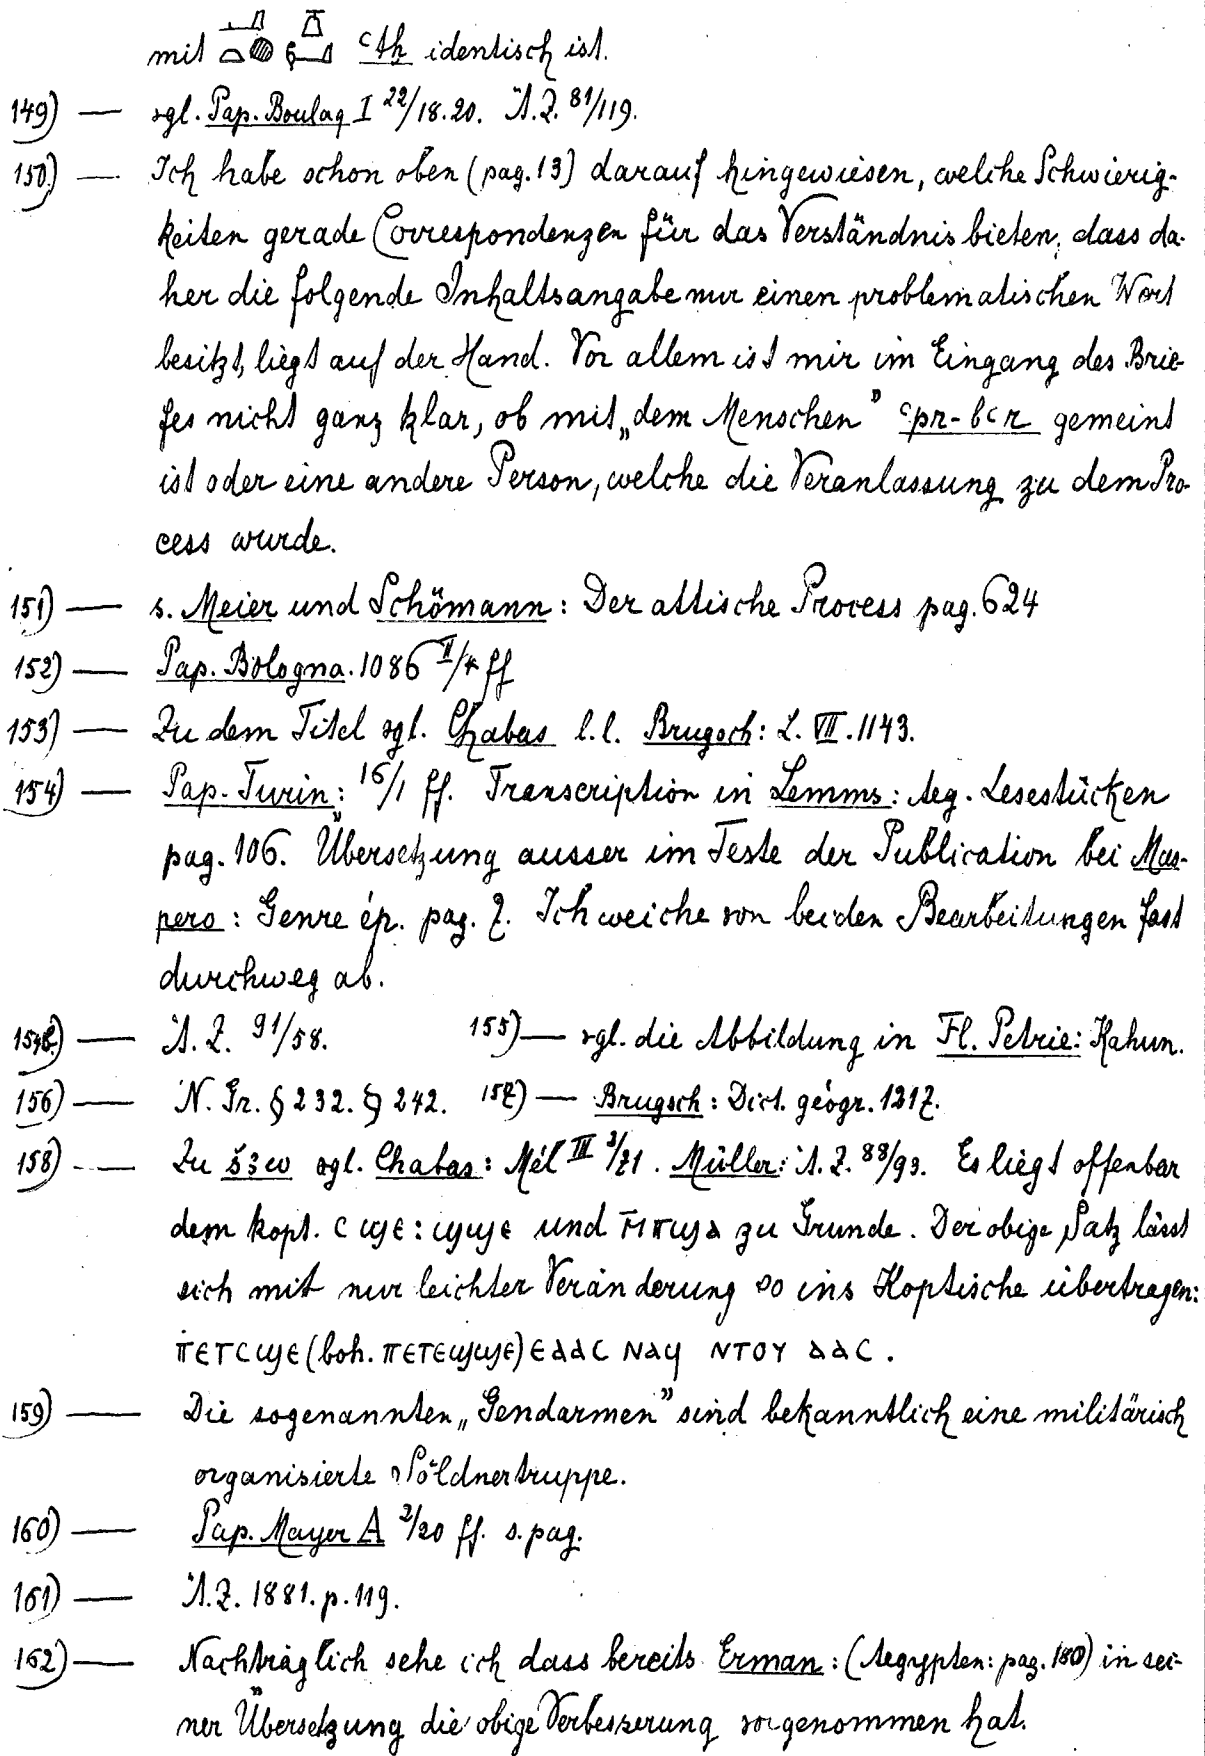 mit ꜥtḫ identisch ist.
149) — vgl. Pap. Boulaq I 22/18.20. Ä.Z. 81/119.
150) — Ich habe schon oben (pag. 13) darauf hingewiesen, welche Schwierig-
keiten gerade Correspondenzen für das Verständnis bieten, dass da-
her die folgende Inhaltsangabe nur einen problematischen Wert
besitzt, liegt auf der Hand. Vor allem ist mir im Eingang des Brie-
fes nicht ganz klar, ob mit „dem Menschen” ꜥpr-bꜥr gemeint
ist oder eine andere Person, welche die Veranlassung zu dem Pro-
cess wurde.
151) — s. Meier und Schömann: Der attische Process pag. 624
152) — Pap. Bologna. 1086 II/4 ff
153) — Zu dem Titel vgl. Chabas l.l. Brugsch: L. VII. 1143.
154) — Pap. Turin: 16/1 ff. Transcription in Lemms: Aeg. Lesestücken
pag. 106. Übersetzung ausser im Texte der Publication bei Mas-
pero: Genre ép. pag. 7. Ich weiche von beiden Bearbeitungen fast
durchweg ab.
154b) — Ä.Z. 91/58. 155) — vgl. die Abbildung in Fl. Petrie: Kahun.
156) — N. Gr. § 232. § 242. 157) — Brugsch: Dict. géogr. 1217.
158) — Zu š3w vgl. Chabas: Mél III 2/21. Müller: Ä.Z. 88/93. Es liegt offenbar
dem kopt. ⲥϣⲉ: ϣϣⲉ und ⲙ̄ⲡϣⲁ zu Grunde. Der obige Satz lässt
sich mit nur leichter Veränderung so ins Koptische übertragen:
ⲡⲉⲧⲥϣⲉ (boh. ⲡⲉⲧⲉϣϣⲉ) ⲉⲁⲁⲥ ⲛⲁϥ ⲛⲧⲟⲩ ⲁⲁⲥ.
159) — Die sogenannten „Gendarmen” sind bekanntlich eine militärisch
organisierte Söldnertruppe.
160) — Pap. Mayer A 2/20 ff. s. pag.
161) — Ä.Z. 1881. p. 119.
162) — Nachträglich sehe ich dass bereits Erman: (Aegypten: pag. 180) in sei-
ner Übersetzung die obige Verbesserung vorgenommen hat.